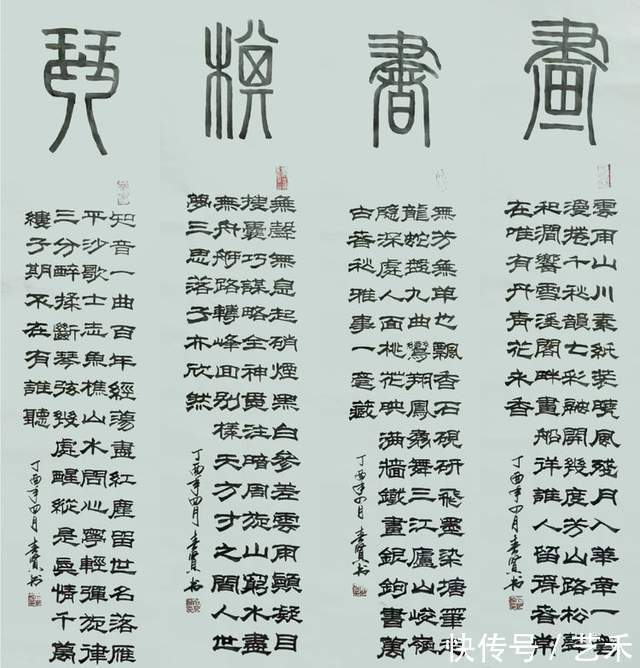 琴
知音一曲百年經蕩盡紅塵留世名落雁
平沙歌士志魚樵山水問心寧輕彈旋律
三分醉揉斷琴弦幾處醒縱是真情千萬
縷子期不在有誰聽
丁酉年四月
棋
無聲無息起硝煙黑白參差雲雨顛凝目
搜囊巧謀略全神貫注暗周旋山窮水盡
無舟艄路轉峰回別樣天方寸之間人世
夢三思落子亦欣然
丁酉年四月
書
無芳無草也飄香石硯研飛墨染塘筆走
龍蛇盤九曲鸞翔鳳翥舞三江廬山峻嶺
隱深處人面桃花映滿牆鐵畫銀鉤書萬
古春秋雅事一毫藏
丁酉年四月
畫
雲雨山川素紙裝曉風殘月入華章一毫
漫捲千秋韻七彩融開幾度芳山路松聲
和澗響雪溪閣畔畫船徉誰人留得春常
在唯有丹青花未香
丁酉年四月
快传号/艺禾